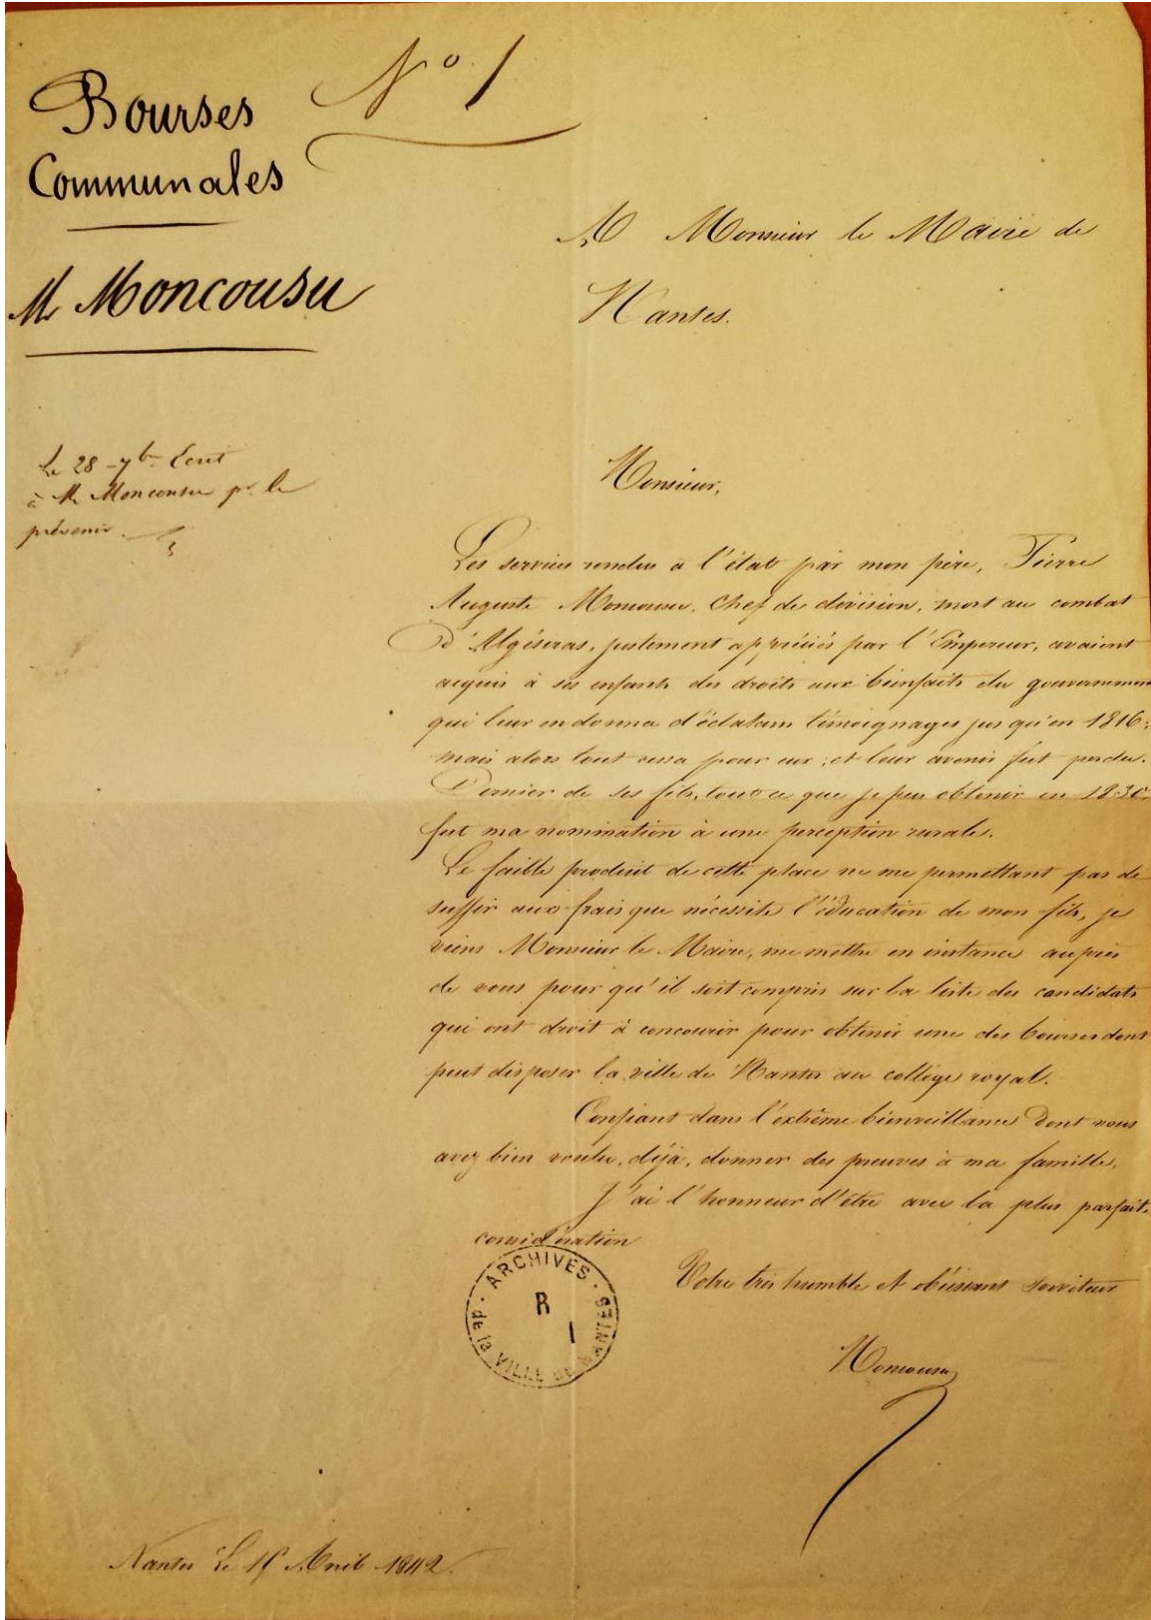 Bourses
Communales
N° 1
Mr Moncousu
A Monsieur le Maire de
Nantes.
Le 28 7bre Ecrit
à Mr Moncousu pr. le
prévenir.
Monsieur,
Les services rendus a l'état par mon père, Pierre
Auguste Moncousu, Chef de division, mort au combat
d'Algésiras, justement appréciés par l'Empereur, avaient
acquis à ses enfants des droits aux bienfaits du gouvernement
qui leur en donna d'éclatans témoignages jusqu'en 1816:
mais alors tout cessa pour eux; et leur avenir fut perdu.
Dernier de ses fils, tout ce que je pus obtenir en 1830
fut ma nomination à une perception rurale.
Le faible produit de cette place ne me permettant pas de
suffir aux frais que nécessite l'éducation de mon fils, je
viens Monsieur le Maire, me mettre en instance auprès
de vous pour qu'il soit compris sur la liste des candidats
qui ont droit à concourir pour obtenir une des bourses dont
peut disposer la ville de Nantes au collège royal.
Confiant dans l'extrême bienveillance dont vous
avez bien voulu, déjà, donner des preuves à ma famille.
J'ai l'honneur d'être avec la plus parfaite
considération
Votre très humble et obéissant serviteur
Moncousu
ARCHIVES de la VILLE de NANTES
R
1
Nantes Le Avril 1842.